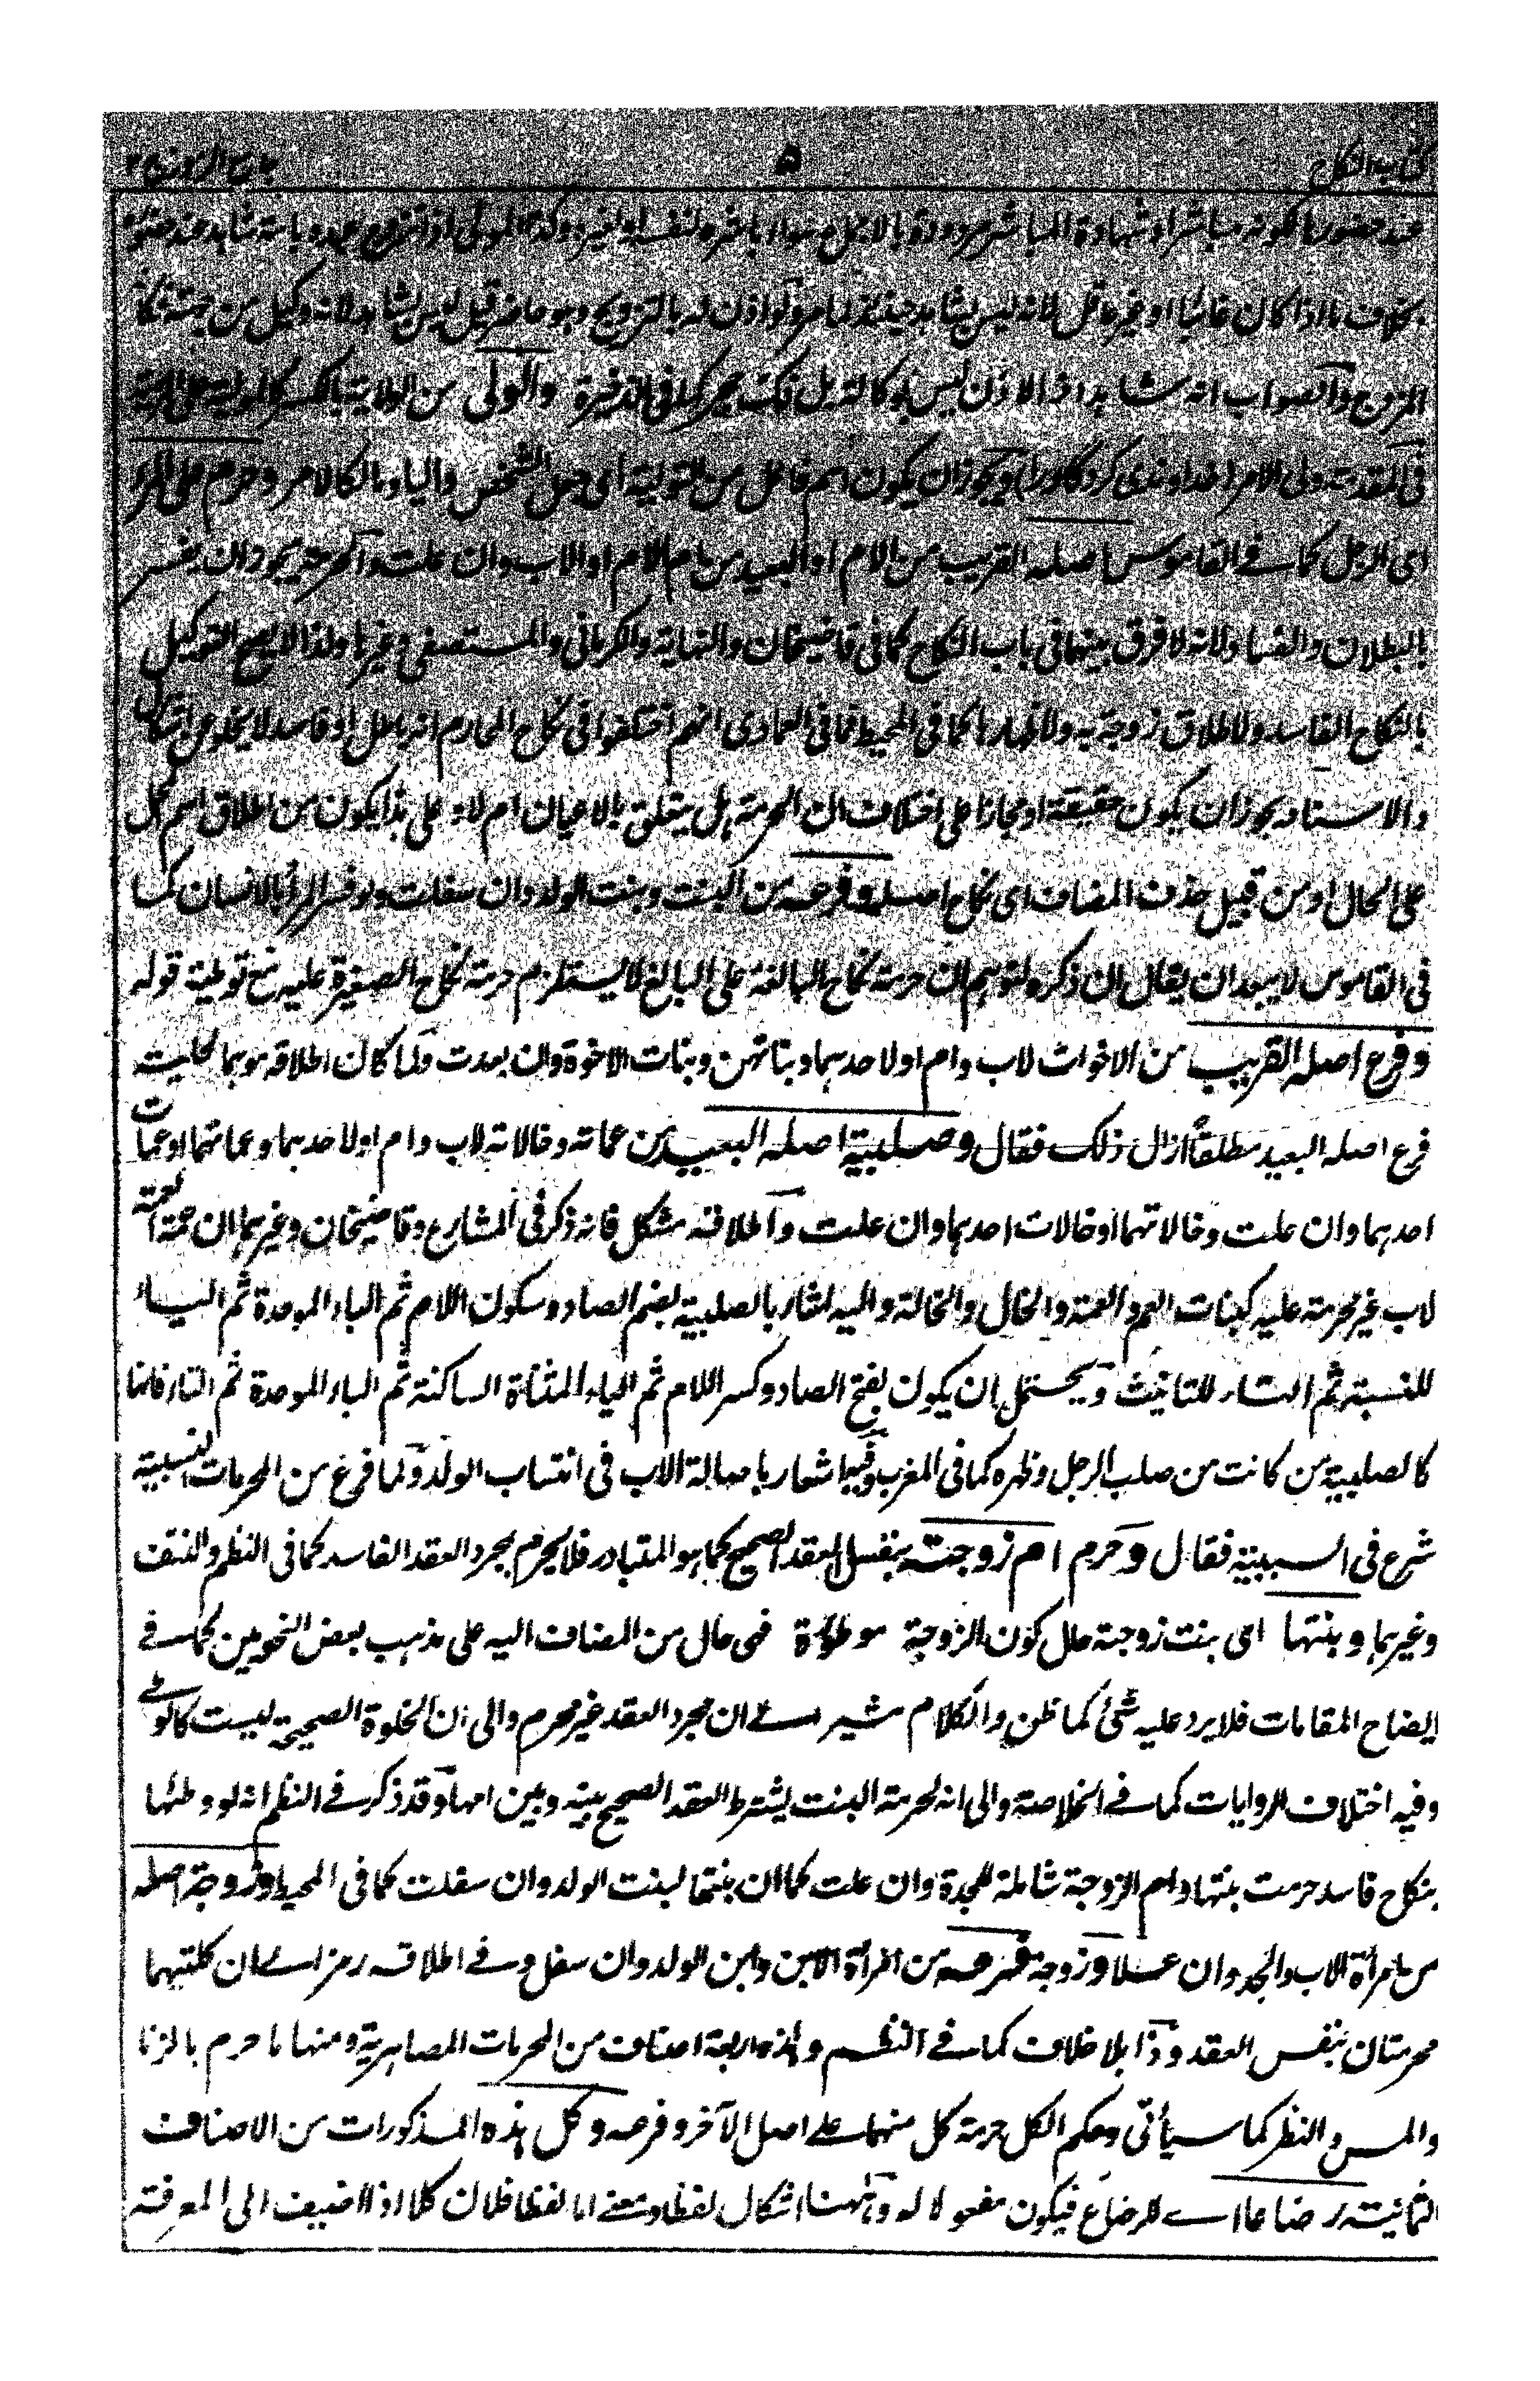 كتاب النكاح ۵ جامع الرموز ج ۲
عند حضورها لكونه مباشرا وشهادة المباشر مردودة بالاجماع سواء باشره لنفسه او لغيره وكذا المولى اذا تزوج عبده بامة شاهد عند حضوره
بخلاف ما اذا كان غائبا او غير عاقل لانه ليس بشاهد حينئذ لما مر ولو اذن له بالتزويج وهو حاضر قيل ليس بشاهد لانه وكيل من جهته فكانه
المزوج والصواب انه شاهد اذ الاذن ليس بوكالة بل فك حجر كما فى الذخيرة والولى من الولاية بالكسر كالولية على
فى المقدمة ولى الامر (خداوندى كرد كاورا) ويجوز ان يكون اسم فاعل من التولية اى جعل الشخص واليا وبالكالامر وحرم على المرء
اى الرجل كما فى القاموس اصله القريب من الام او البعيد من ام الام او الاب وان علت والحرمة يجوز ان يفسر
بالبطلان والفساد لانه لا فرق بينهما فى باب النكاح كما فى قاضيخان والنهاية والكرمانى والمستصفى وغيرها ولذا لا يصح التوكيل
بالنكاح الفاسد ولا طلاق زوجة به ولا ظهارها كما فى المحيط فما فى العمادى انهم اختلفوا فى نكاح المحارم انه باطل او فاسد لا يخلو عن اشكال
والاسناد يجوز ان يكون حقيقة او مجازا على اختلاف ان الحرمة هل يتعلق بالاعيان ام لا وعلى هذا يكون من اطلاق اسم المحل
على الحال او من قبيل حذف المضاف اى نكاح اصله وفرعه من البنت وبنت الولد وان سفلت ولو فسر المرأ بالانسان كما
فى القاموس لا يبعد ان يقال ان ذكره لتوهم ان حرمة نكاح البالغة على البالغ لا يستلزم حرمة نكاح الصغيرة عليه مع توطية قوله
وفرع اصله القريب من الاخوات لاب وام او لاحدهما وبناتهن وبنات الاخوة وان بعدت ولما كان اطلاقه موهما لحلية
فرع اصله البعيد مطلقا ازال ذلك فقال وصلبية اصله البعيد من عماته وخالاته لاب وام او لاحدهما وعماتهما او عمات
احدهما وان علت وخالاتهما او خالات احدهما وان علت واطلاقه مشكل فانه ذكر فى المشارع وقاضيخان وغيرهما ان عمة العمة
لاب غير محرمة عليه كبنات العم والعمة والخال والخالة واليه اشار بالصلبية بضم الصاد وسكون اللام ثم الباء الموحدة ثم الياء
للنسبة ثم التاء للتانيث ويحتمل ان يكون بفتح الصاد وكسر اللام ثم الياء المثناة الساكنة ثم الباء الموحدة ثم التاء فانها
كالصلبية من كانت من صلب الرجل وظهره كما فى المغرب وفيه اشعار باصالة الاب فى انتساب الولد ولما فرغ من المحرمات النسبية
شرع فى السببية فقال وحرم ام زوجته بنفس العقد الصحيح كما هو المتبادر فلا يحرم بمجرد العقد الفاسد كما فى النظم والنتف
وغيرهما وبنتها اى بنت زوجته حال كون الزوجة موطؤة فهى حال من المضاف اليه على مذهب بعض النحويين كما فى
ايضاح المقامات فلا يرد عليه شئ كما ظن والكلام مشير الى ان مجرد العقد غير محرم والى ان الخلوة الصحيحة ليست كالوطى
وفيه اختلاف الروايات كما فى الخلاصة والى انه لحرمة البنت يشترط العقد الصحيح بينه وبين امها وقد ذكر فى النظم انه لو وطئها
بنكاح فاسد حرمت بنتها وام الزوجة شاملة للجدة وان علت كما ان بنتها لبنت الولد وان سفلت كما فى المحيط وزوجة اصله
من امرأة الاب والجد وان علا وزوجة فرعه من امرأة الابن وابن الولد وان سفل وفى اطلاقه رمز الى ان كلتيهما
محرمتان بنفس العقد وذا بلا خلاف كما فى النظم وهذه اربعة اصناف من المحرمات المصاهرية ومنها ما حرم بالزنا
والمس والنظر كما سيأتى وحكم الكل حرمة كل منهما على اصل الآخر وفرعه وكل هذه المذكورات من الاصناف
الثمانية رضاعا اى للرضاع فيكون مفعولا له وههنا اشكال لفظا ومعنى اما لفظا فلان كلا اذا اضيف الى المعرفة